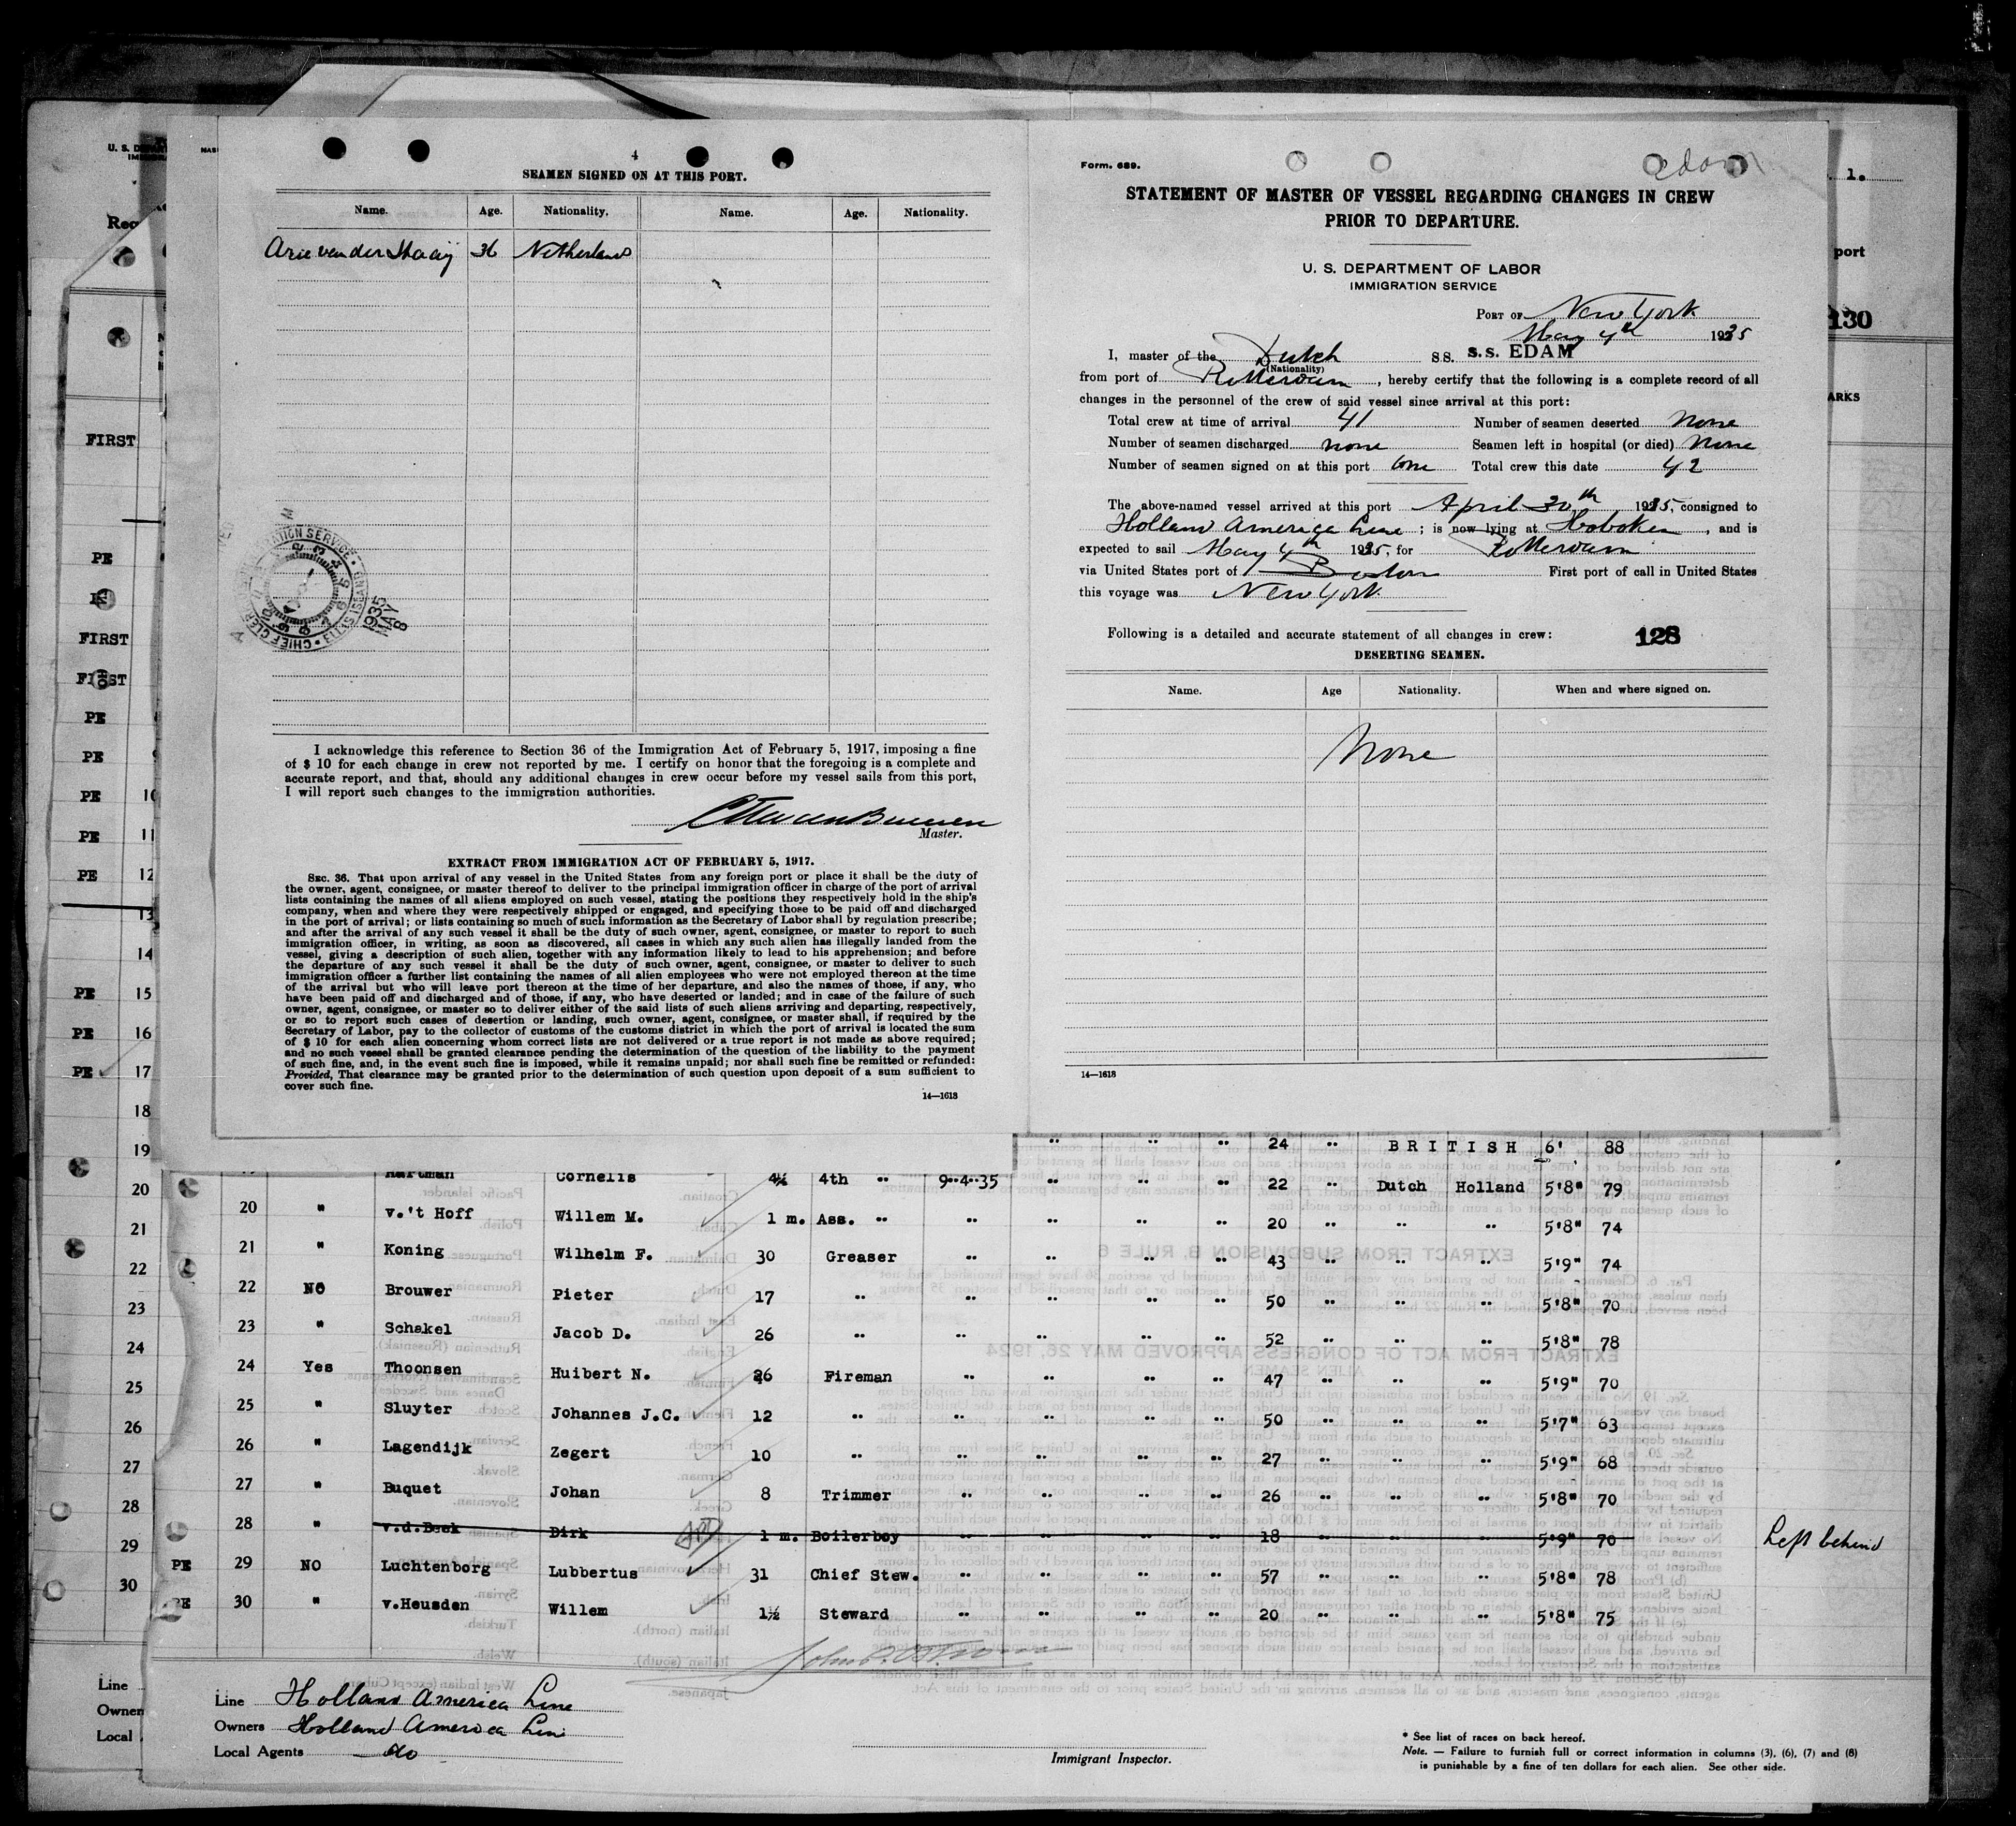 4
SEAMEN SIGNED ON AT THIS PORT.
Name. Age. Nationality. Name. Age. Nationality.
Arie van der Staaij 36 Netherlands
CHIEF CLERK
ELLIS ISLAND
1935
MAY
8
I acknowledge this reference to Section 36 of the Immigration Act of February 5, 1917, imposing a fine
of $ 10 for each change in crew not reported by me. I certify on honor that the foregoing is a complete and
accurate report, and that, should any additional changes in crew occur before my vessel sails from this port,
I will report such changes to the immigration authorities.
Master.
EXTRACT FROM IMMIGRATION ACT OF FEBRUARY 5, 1917.
SEC. 36. That upon arrival of any vessel in the United States from any foreign port or place it shall be the duty of
the owner, agent, consignee, or master thereof to deliver to the principal immigration officer in charge of the port of arrival
lists containing the names of all aliens employed on such vessel, stating the positions they respectively hold in the ship's
company, when and where they were respectively shipped or engaged, and specifying those to be paid off and discharged
in the port of arrival; or lists containing so much of such information as the Secretary of Labor shall by regulation prescribe;
and after the arrival of any such vessel it shall be the duty of such owner, agent, consignee, or master to report to such
immigration officer, in writing, as soon as discovered, all cases in which any such alien has illegally landed from the
vessel, giving a description of such alien, together with any information likely to lead to his apprehension; and before
the departure of any such vessel it shall be the duty of such owner, agent, consignee, or master to deliver to such
immigration officer a further list containing the names of all alien employees who were not employed thereon at the time
of the arrival but who will leave port thereon at the time of her departure, and also the names of those, if any, who
have been paid off and discharged and of those, if any, who have deserted or landed; and in case of the failure of such
owner, agent, consignee, or master so to deliver either of the said lists of such aliens arriving and departing, respectively,
or so to report such cases of desertion or landing, such owner, agent, consignee, or master shall, if required by the
Secretary of Labor, pay to the collector of customs of the customs district in which the port of arrival is located the sum
of $ 10 for each alien concerning whom correct lists are not delivered or a true report is not made as above required;
and no such vessel shall be granted clearance pending the determination of the question of the liability to the payment
of such fine, and, in the event such fine is imposed, while it remains unpaid; nor shall such fine be remitted or refunded:
Provided, That clearance may be granted prior to the determination of such question upon deposit of a sum sufficient to
cover such fine.
14—1618
Form. 689.
Edam
STATEMENT OF MASTER OF VESSEL REGARDING CHANGES IN CREW
PRIOR TO DEPARTURE.
U. S. DEPARTMENT OF LABOR
IMMIGRATION SERVICE
PORT OF New York
May 4th 1935
I, master of the Dutch SS. S.S. EDAM
(Nationality)
from port of Rotterdam, hereby certify that the following is a complete record of all
changes in the personnel of the crew of said vessel since arrival at this port:
Total crew at time of arrival 41 Number of seamen deserted None
Number of seamen discharged none Seamen left in hospital (or died) None
Number of seamen signed on at this port one Total crew this date 42
The above-named vessel arrived at this port April 30th 1935, consigned to
Holland America Line; is now lying at Hoboken, and is
expected to sail May 4th 1935, for Rotterdam
via United States port of Boston First port of call in United States
this voyage was New York
Following is a detailed and accurate statement of all changes in crew: 128
DESERTING SEAMEN.
Name. Age Nationality. When and where signed on.
None
14—1618
1.
port
130
ARKS
U. S.
FIRST
PE
FIRST
FIRST
PE
PE
PE 10
PE 11
PE 12
13
14
PE 15
PE 16
PE 17
18
19
20
21
22
23
24
25
26
27
28
29
30
" " " 24 " BRITISH 6' 88
Hartman Cornelis 4½ 4th " 9-4-35 " " " 22 " Dutch Holland 5'8" 79
20 " v.'t Hoff Willem M. 1 m. Ass. " " " " " 20 " " " 5'8" 74
21 " Koning Wilhelm F. 30 Greaser " " " " 43 " " " 5'9" 74
22 NO Brouwer Pieter 17 " " " " " 50 " " " 5'8" 70
23 " Schakel Jacob D. 26 " " " " " 52 " " " 5'8" 78
24 Yes Thoonsen Huibert N. 26 Fireman " " " " 47 " " " 5'9" 70
25 " Sluyter Johannes J.C. 12 " " " " " 50 " " " 5'7" 63
26 " Lagendijk Zegert 10 " " " " " 27 " " " 5'9" 68
27 " Buquet Johan 8 Trimmer " " " " 26 " " " 5'8" 70
28 " v.d.Beek Dirk 1 m. Boilerboy " " " " 18 " " " 5'9" 70 Left behind
PE 29 NO Luchtenborg Lubbertus 31 Chief Stew. " " " " 57 " " " 5'8" 78
PE 30 " v.Heusden Willem 1½ Steward " " " " 20 " " " 5'8" 75
Line Holland America Line
Owners Holland America Line
Local Agents do
Line
Owner
Local
Immigrant Inspector.
* See list of races on back hereof.
Note. — Failure to furnish full or correct information in columns (3), (6), (7) and (8)
is punishable by a fine of ten dollars for each alien. See other side.